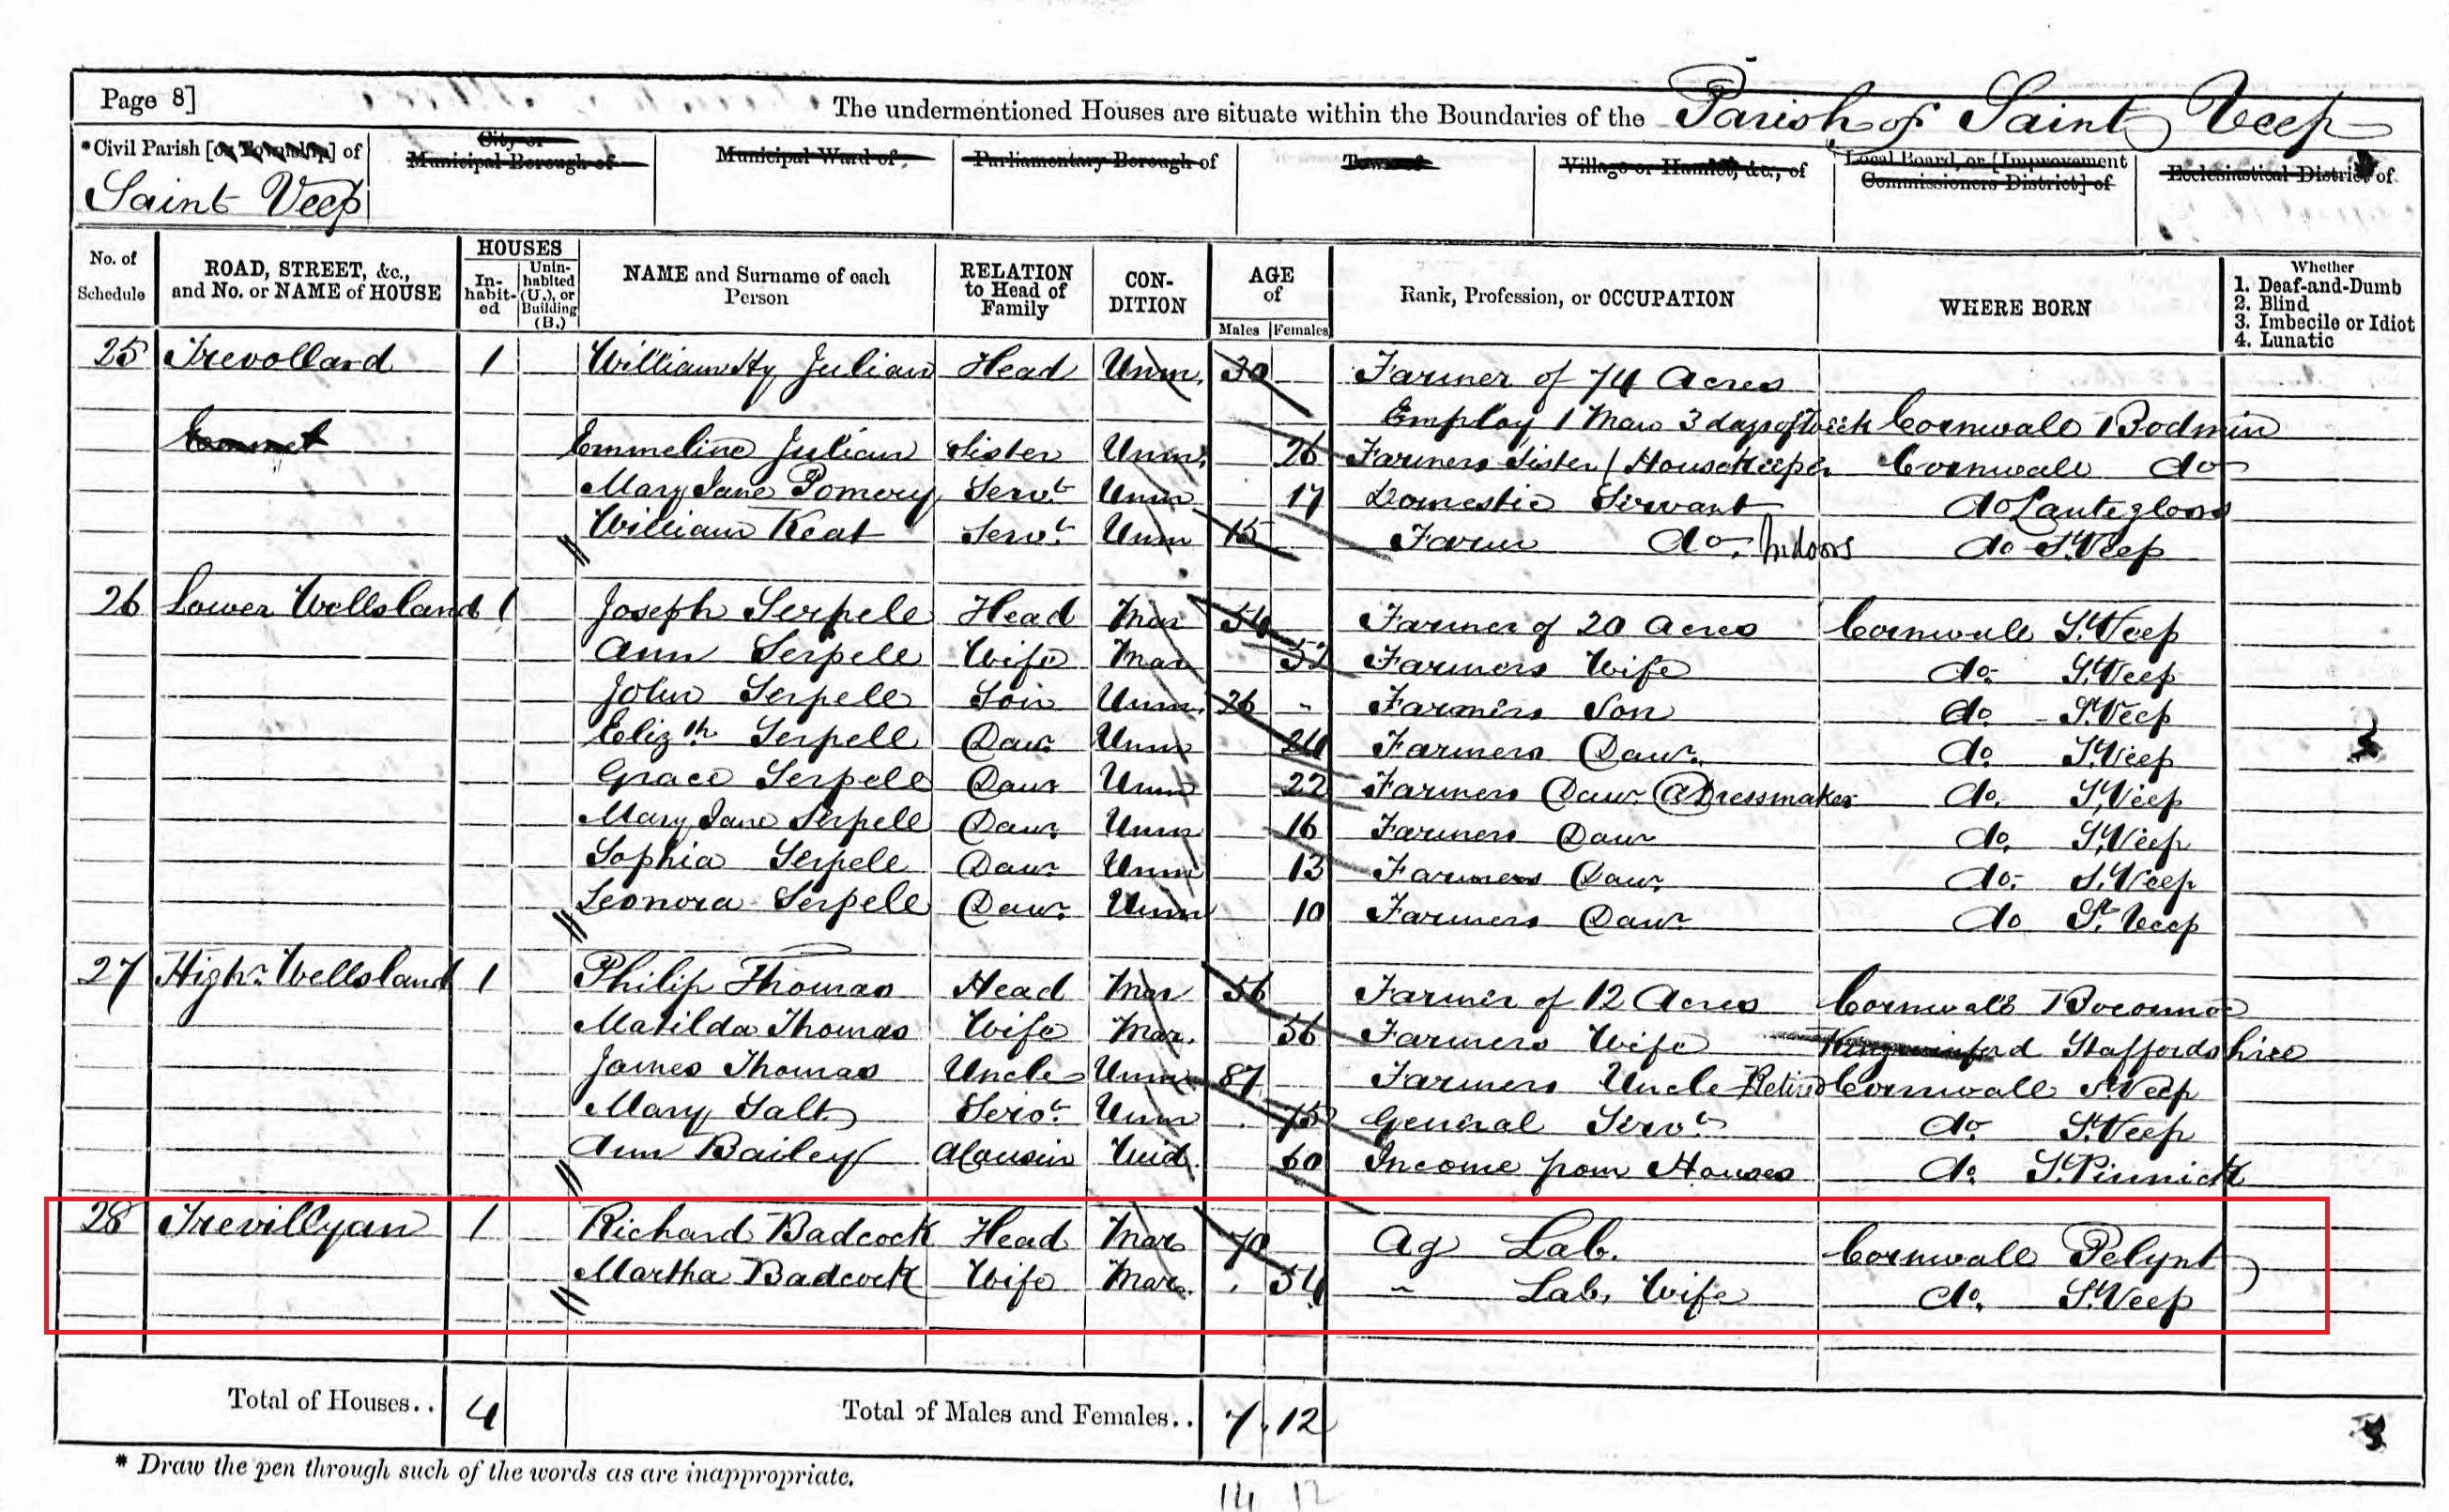 Page 8]
The undermentioned Houses are situate within the Boundaries of the Parish of Saint Veep
*Civil Parish [or Township] of
Saint Veep
City or
Municipal Borough of
Municipal Ward of
Parliamentary Borough of
Town of
Village or Hamlet, &c., of
Local Board, or [Improvement
Commissioners District] of
Ecclesiastical District of
No. of
Schedule
ROAD, STREET, &c.,
and No. or NAME of HOUSE
HOUSES
In-
habit-
ed
Unin-
habited
(U.), or
Building
(B.)
NAME and Surname of each
Person
RELATION
to Head of
Family
CON-
DITION
AGE
of
Males Females
Rank, Profession, or OCCUPATION
WHERE BORN
Whether
1. Deaf-and-Dumb
2. Blind
3. Imbecile or Idiot
4. Lunatic
25 Trevollard 1 William Hy Julian Head Unm. 30 Farmer of 74 Acres
Employ 1 Man 3 days of Week Cornwall Bodmin
Emmeline Julian Sister Unm. 26 Farmers Sister / Housekeeper Cornwall do
Mary Jane Pomery Servt Unm 17 Domestic Servant do Lanteglos
William Keat Servt Unm 15 Farm do Indoors do St Veep
26 Lower Wellsland 1 Joseph Serpell Head Mar 54 Farmer of 20 Acres Cornwall St Veep
Ann Serpell Wife Mar 52 Farmers Wife do St Veep
John Serpell Son Unm. 26 - Farmers Son do - St Veep
Elizth Serpell Daur Unm 24 Farmers Daur. do St Veep
Grace Serpell Daur Unm 22 Farmers Daur Dressmaker do. St Veep
Mary Jane Serpell Daur Unm 16 Farmers Daur do. St Veep
Sophia Serpell Daur Unm 13 Farmers Daur do. St Veep
Leonora Serpell Daur Unm 10 Farmers Daur do St Veep
27 Highr Wellsland 1 Philip Thomas Head Mar 56 Farmer of 12 Acres Cornwall Boconnoc
Matilda Thomas Wife Mar. 56 Farmers Wife Kingswinford Staffordshire
James Thomas Uncle Unm 87 Farmers Uncle Retired Cornwall St Veep
Mary Salt Servt Unm 75 General Servt do St Veep
Ann Bailey Cousin Wid. 60 Income from Houses do. St Pinnick
28 Trevillyan 1 Richard Badcock Head Mar 70 Ag Lab. Cornwall Pelynt
Martha Badcock Wife Mar. 54 " Lab. Wife do. St Veep
Total of Houses.. 4 Total of Males and Females.. 7 . 12
* Draw the pen through such of the words as are inappropriate.
14 12